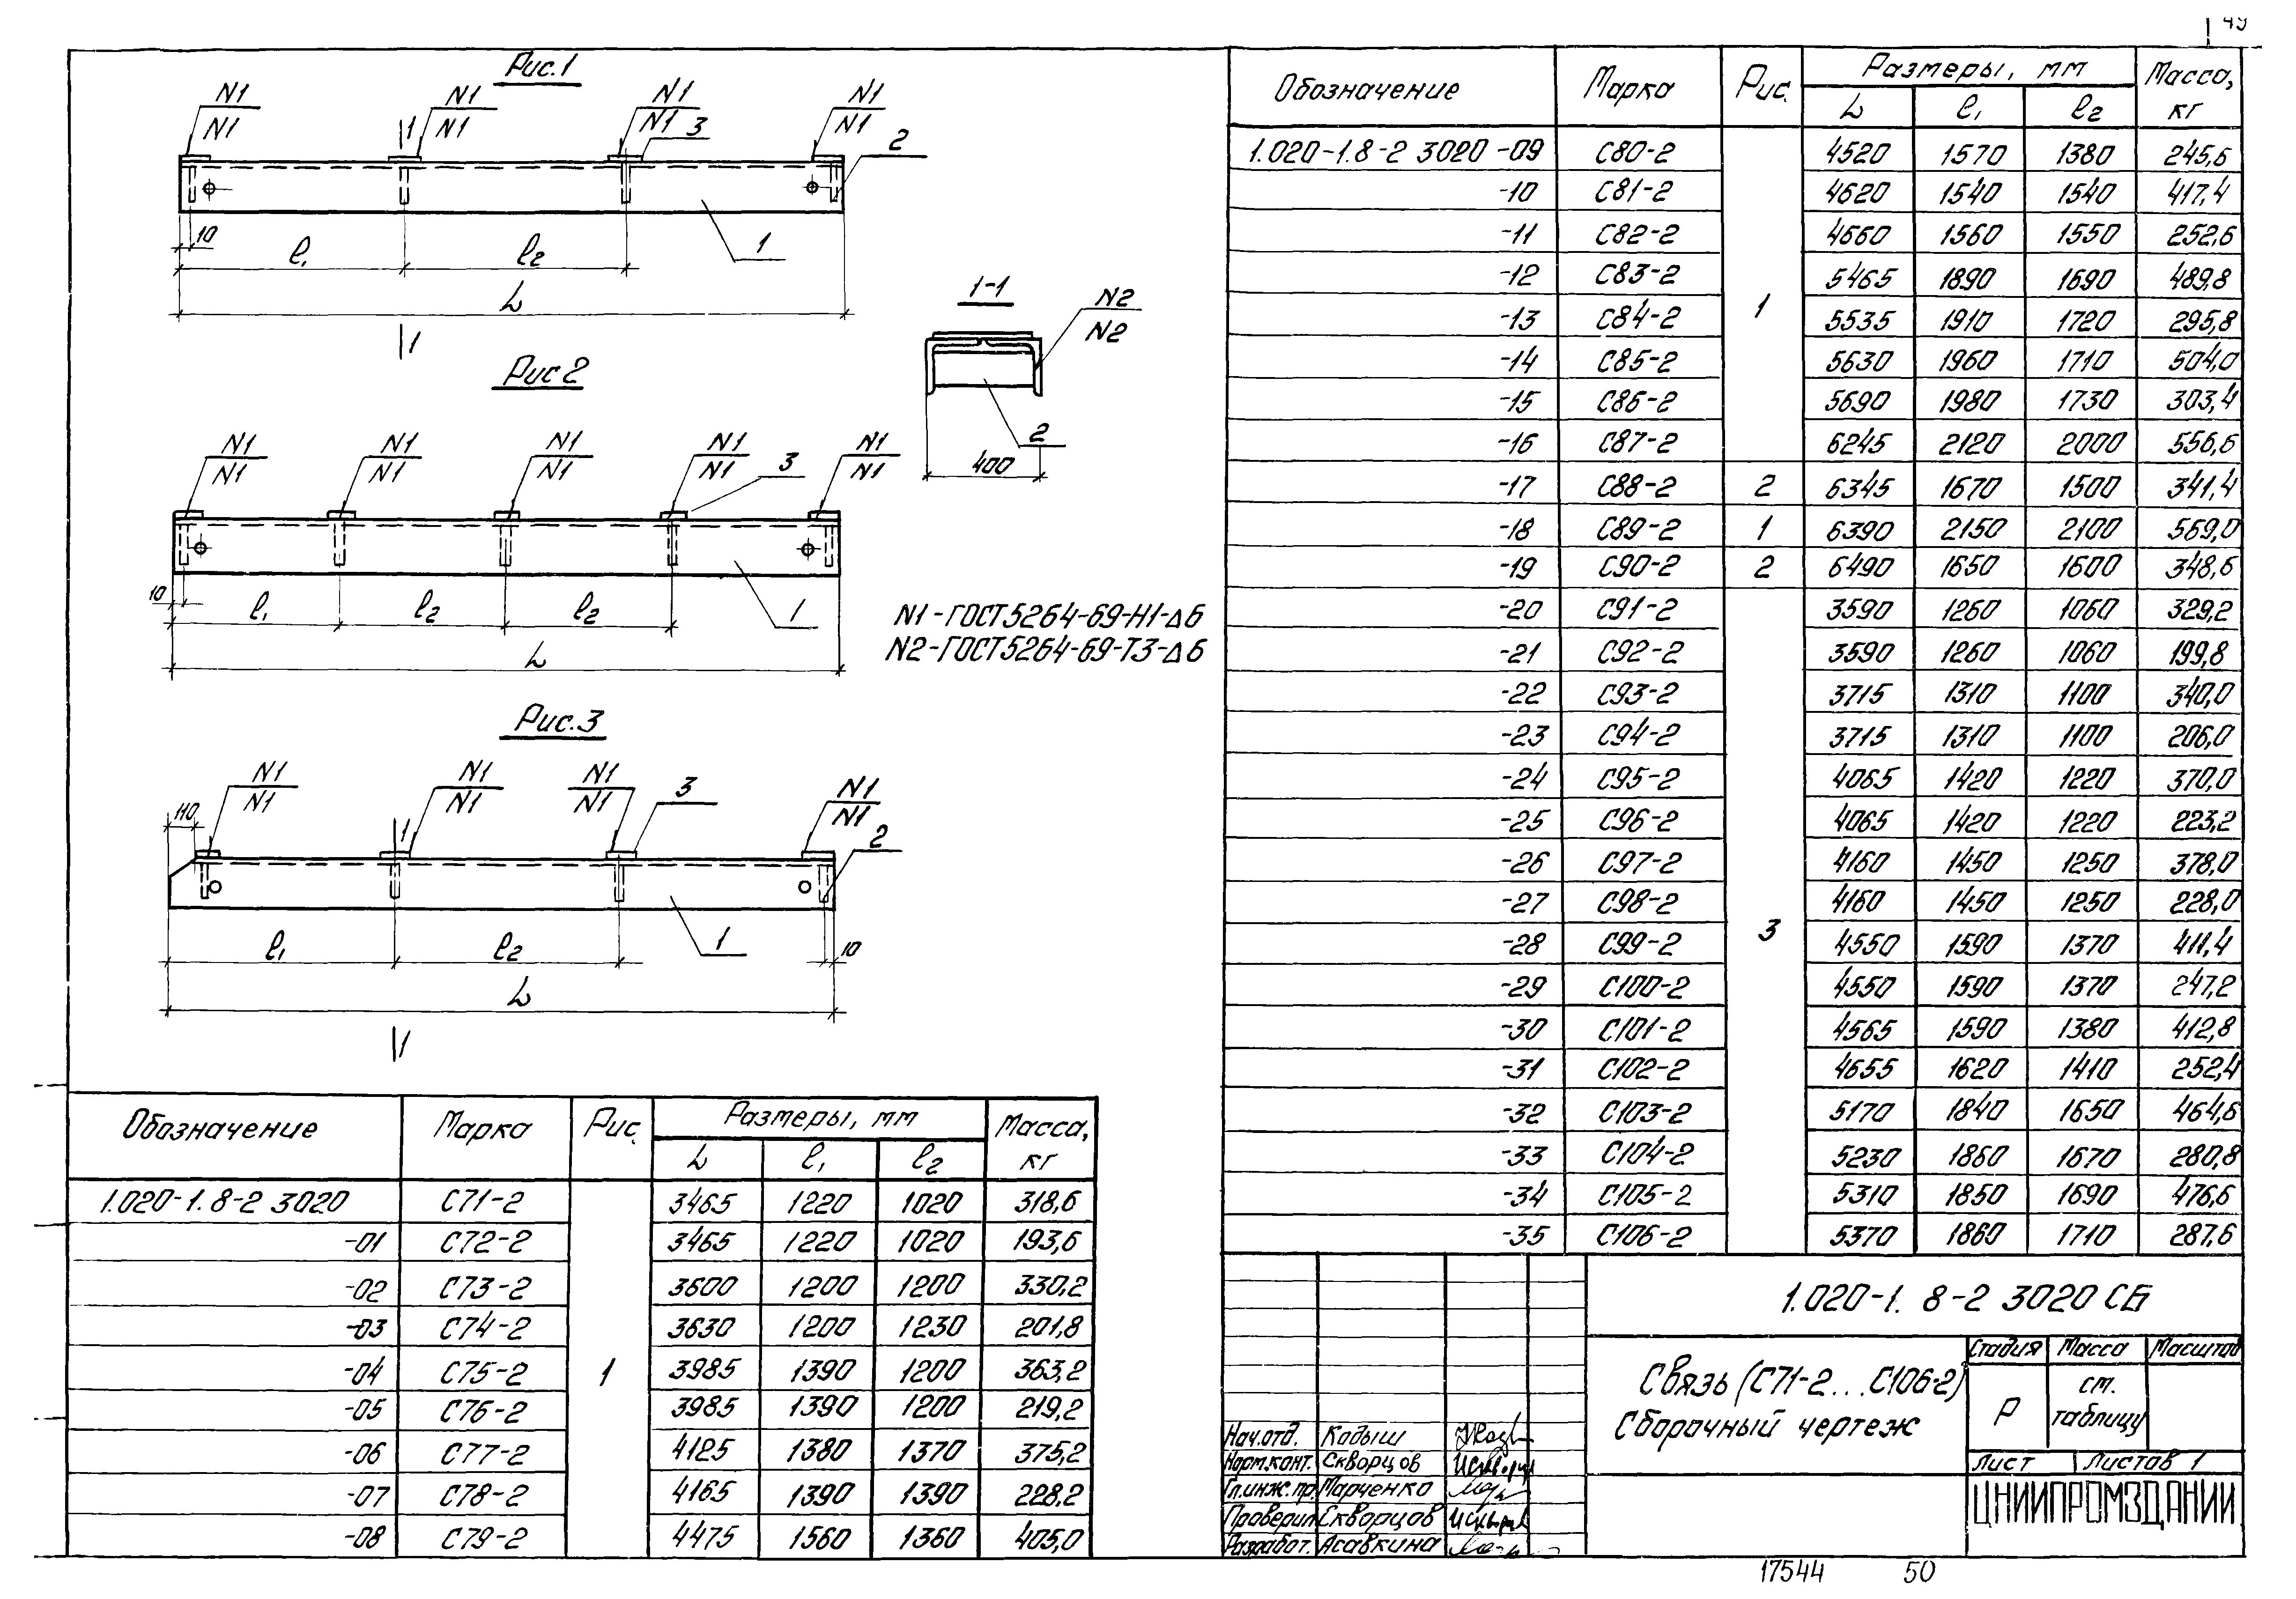 49
Рис.1
N1 N1 N1 N1
N1 N1 N1 N1
1 3 2
10 l1 l2 1
L
1
1-1
N2
N2
2
400
Рис 2
N1 N1 N1 N1 N1
N1 N1 N1 N1 N1
3
10 l1 l2 l2 1
L
N1-ГОСТ5264-69-Н1-Δ6
N2-ГОСТ5264-69-Т3-Δ6
Рис.3
N1 N1 N1 N1
N1 N1 N1 N1
110 1 3 2
l1 l2 1 10
L
1
Обозначение Марка Рис. Размеры, мм Масса, кг
L l1 l2
1.020-1.8-2 3020 С71-2 1 3465 1220 1020 318,6
-01 С72-2 3465 1220 1020 193,6
-02 С73-2 3600 1200 1200 330,2
-03 С74-2 3630 1200 1230 201,8
-04 С75-2 3985 1390 1200 363,2
-05 С76-2 3985 1390 1200 219,2
-06 С77-2 4125 1380 1370 375,2
-07 С78-2 4165 1390 1390 228,2
-08 С79-2 4475 1560 1360 405,0
Обозначение Марка Рис. Размеры, мм Масса, кг
L l1 l2
1.020-1.8-2 3020 -09 С80-2 1 4520 1570 1380 245,6
-10 С81-2 4620 1540 1540 417,4
-11 С82-2 4660 1560 1550 252,6
-12 С83-2 5465 1890 1690 489,8
-13 С84-2 5535 1910 1720 295,8
-14 С85-2 5630 1960 1710 504,0
-15 С86-2 5690 1980 1730 303,4
-16 С87-2 6245 2120 2000 556,6
-17 С88-2 2 6345 1670 1500 341,4
-18 С89-2 1 6390 2150 2100 569,0
-19 С90-2 2 6490 1650 1600 348,6
-20 С91-2 3 3590 1260 1060 329,2
-21 С92-2 3590 1260 1060 199,8
-22 С93-2 3715 1310 1100 340,0
-23 С94-2 3715 1310 1100 206,0
-24 С95-2 4065 1420 1220 370,0
-25 С96-2 4065 1420 1220 223,2
-26 С97-2 4160 1450 1250 378,0
-27 С98-2 4160 1450 1250 228,0
-28 С99-2 4550 1590 1370 411,4
-29 С100-2 4550 1590 1370 247,2
-30 С101-2 4565 1590 1380 412,8
-31 С102-2 4655 1620 1410 252,4
-32 С103-2 5170 1840 1650 464,6
-33 С104-2 5230 1860 1670 280,8
-34 С105-2 5310 1850 1690 476,6
-35 С106-2 5370 1860 1710 287,6
1.020-1. 8-2 3020 СБ
Связь (С71-2...С106-2)
Сборочный чертеж
Стадия Масса Масштаб
Р см. таблицу
Лист Листов 1
ЦНИИПРОМЗДАНИЙ
Нач.отд. Кодыш
Норм.конт. Скворцов
Гл.инж.пр. Марченко
Проверил Скворцов
Разработ. Асавкина
17544 50